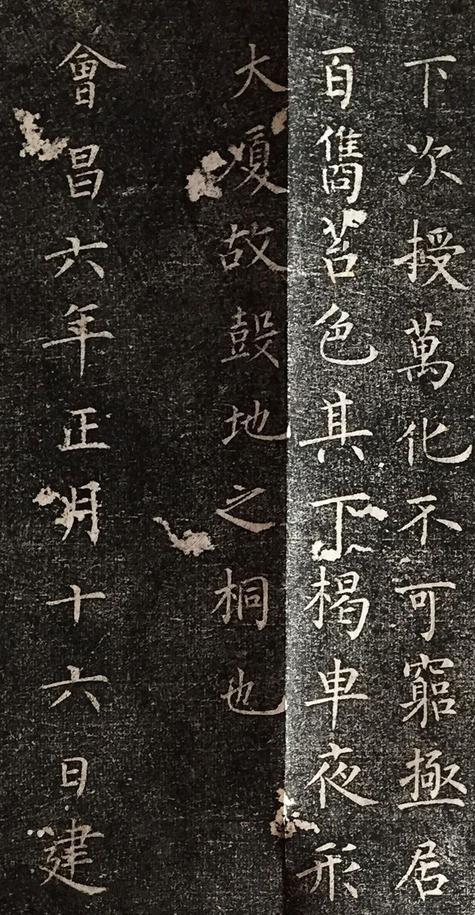 下次授萬化不可窮極居
百儶苔色其下楬車夜形
大故鼓地之桐也
會昌六年正月十六日建